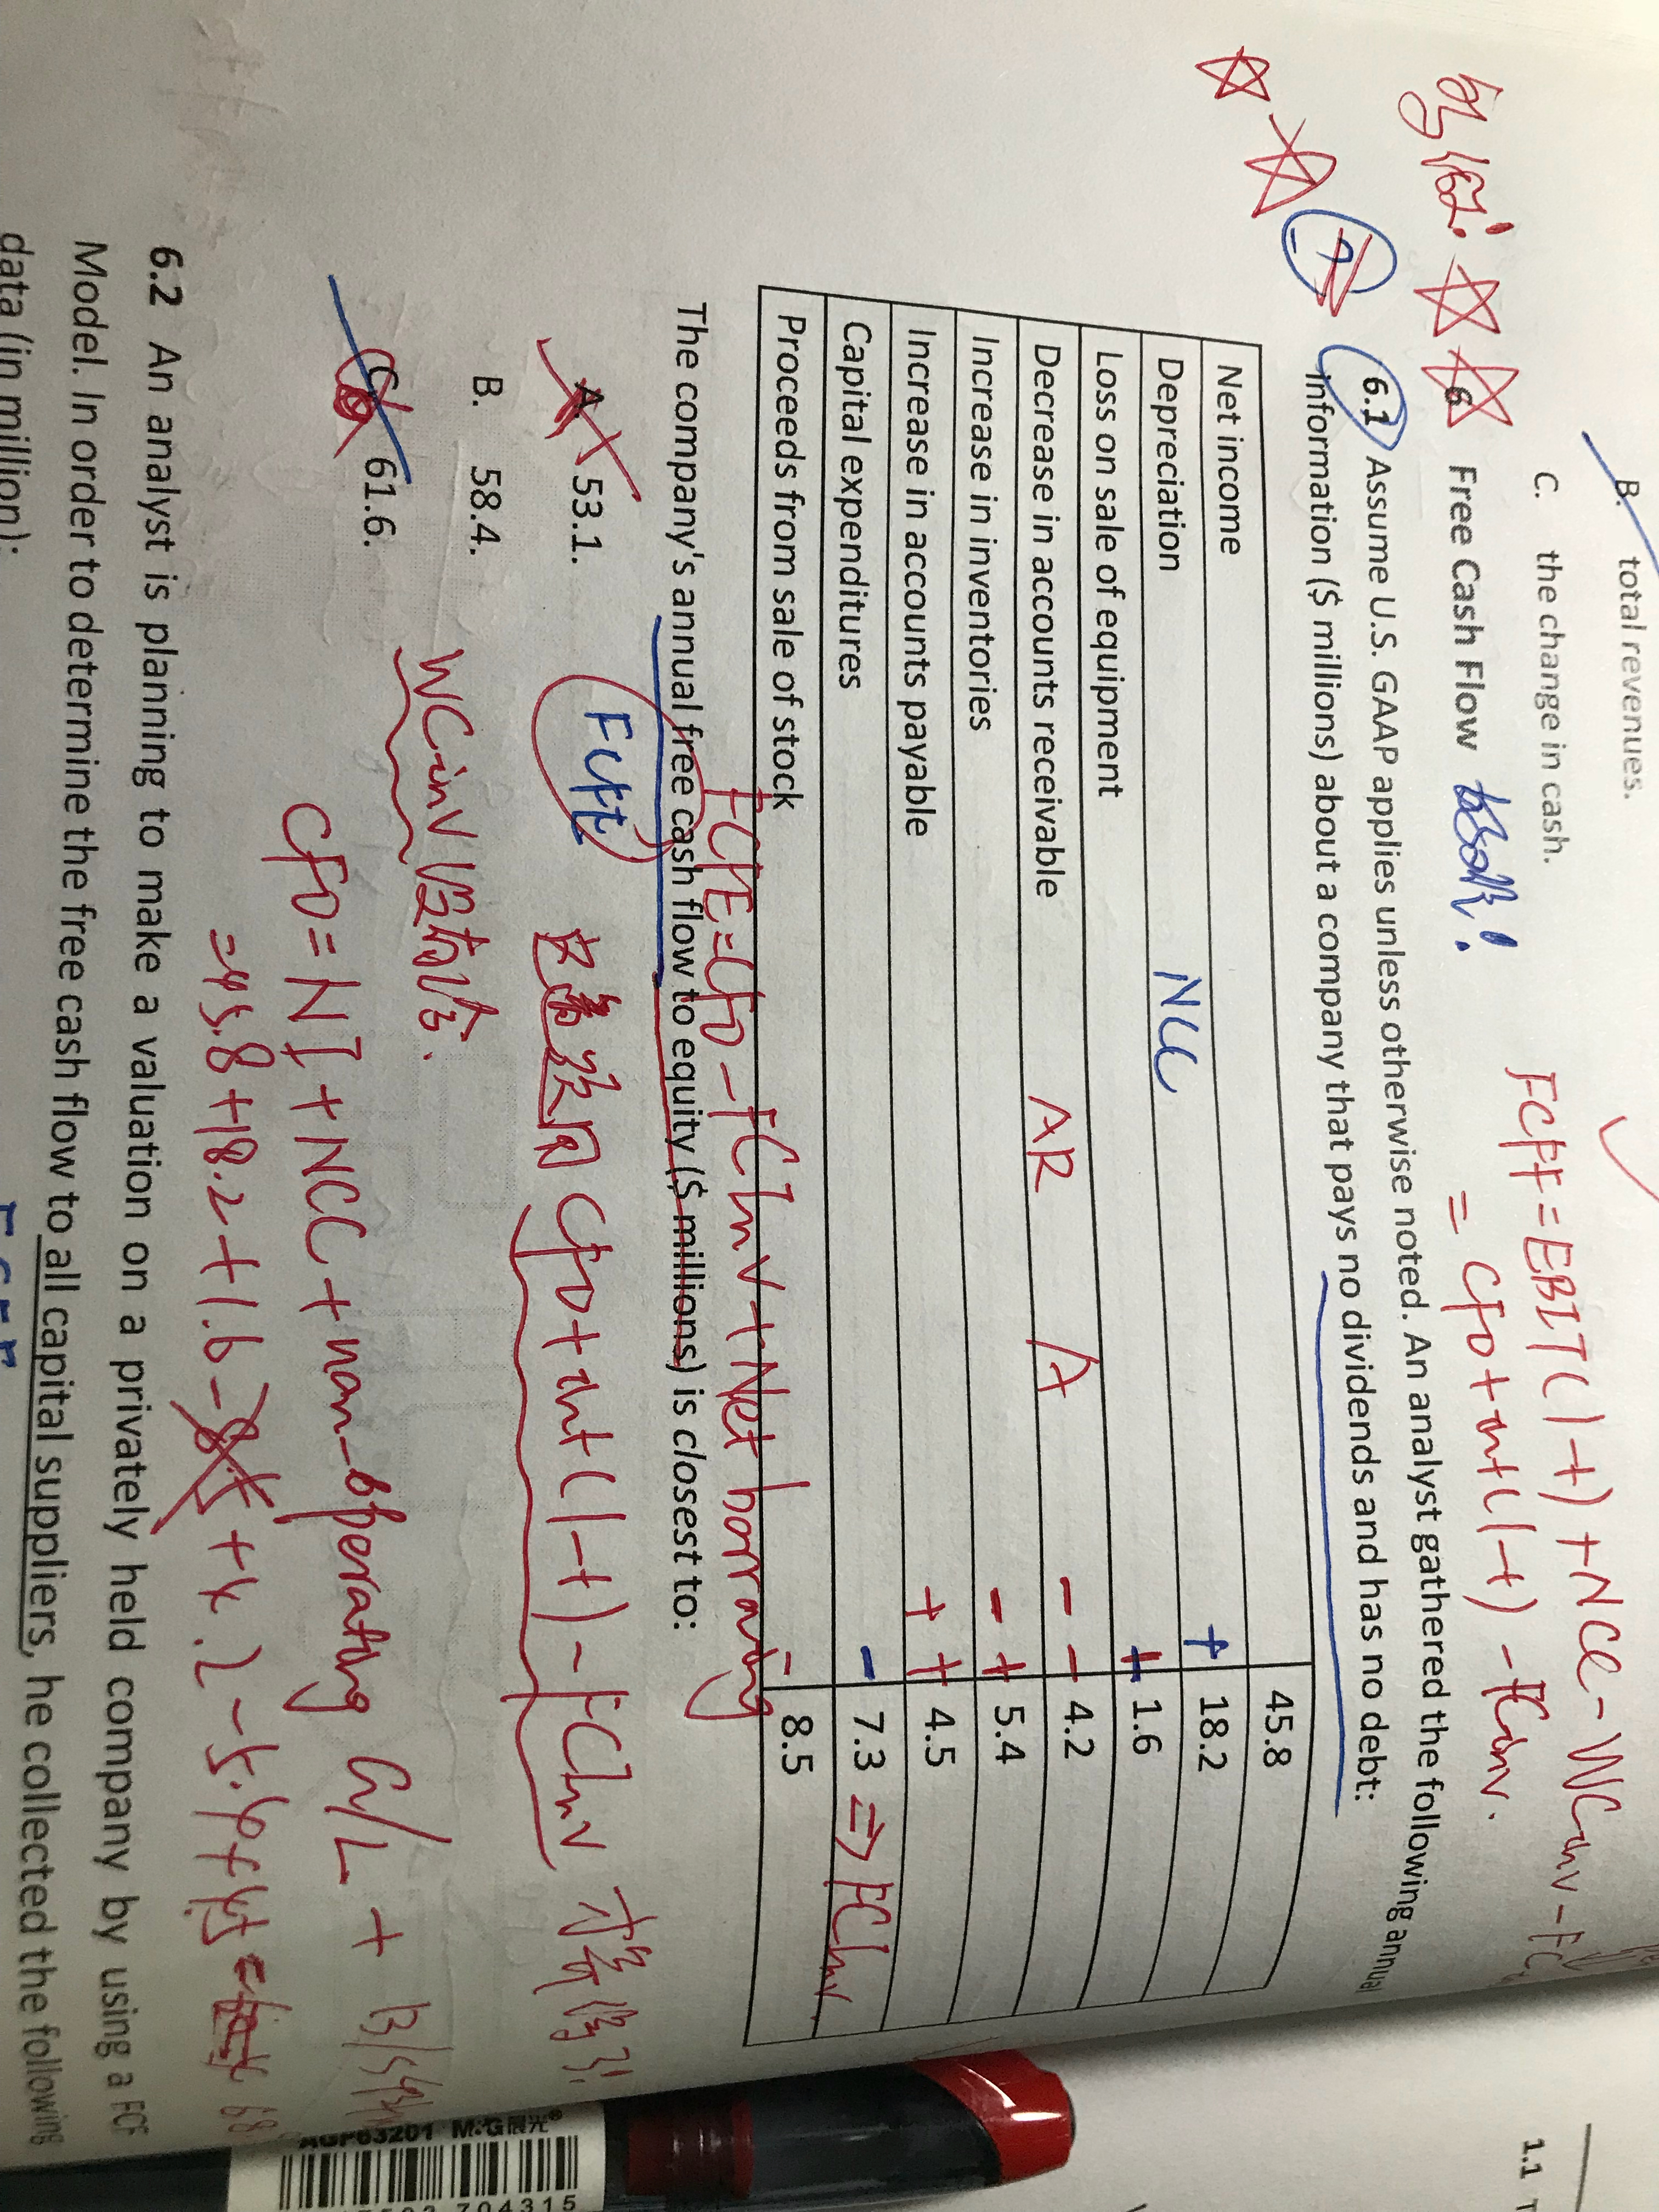 B. total revenues.
C. the change in cash.
FCFF=EBIT(1-t)+NCC-WCinv-FC
= CFO+int(1-t)-FCinv.
6 Free Cash Flow
6.1 Assume U.S. GAAP applies unless otherwise noted. An analyst gathered the following annual
information ($ millions) about a company that pays no dividends and has no debt:
Net income 45.8
Depreciation NCC + 18.2
Loss on sale of equipment + 1.6
Decrease in accounts receivable AR A - - 4.2
Increase in inventories - + 5.4
Increase in accounts payable + + 4.5
Capital expenditures - 7.3 ⇒ FCInv
Proceeds from sale of stock - 8.5
FCFE=CFO-FCInv+Net borrowing
The company's annual free cash flow to equity ($ millions) is closest to:
A. 53.1.
B. 58.4.
C. 61.6.
CFO+int(1-t)-FCInv
WCinv
CFO=NI+NCC+non-operating G/L+
=45.8+18.2+1.6
6.2 An analyst is planning to make a valuation on a privately held company by using a FCF
Model. In order to determine the free cash flow to all capital suppliers, he collected the following
data (in million):
1.1
AGP63201 M&G晨光®
704315